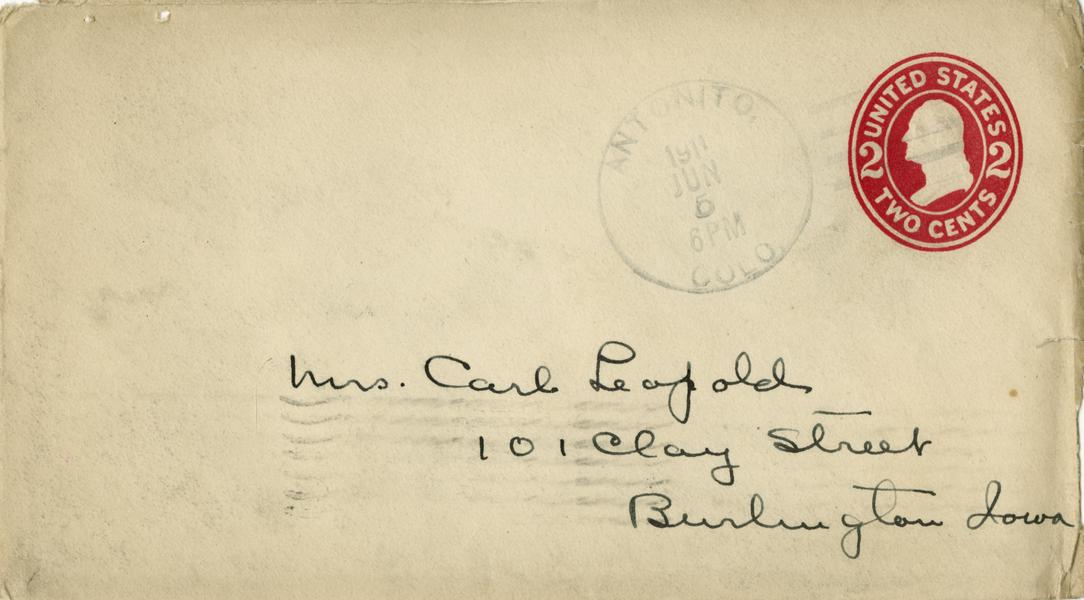 ANTONITO,
1911
JUN
5
6 PM
COLO.
UNITED STATES
2 2
TWO CENTS
Mrs. Carl Leopold
101 Clay Street
Burlington Iowa